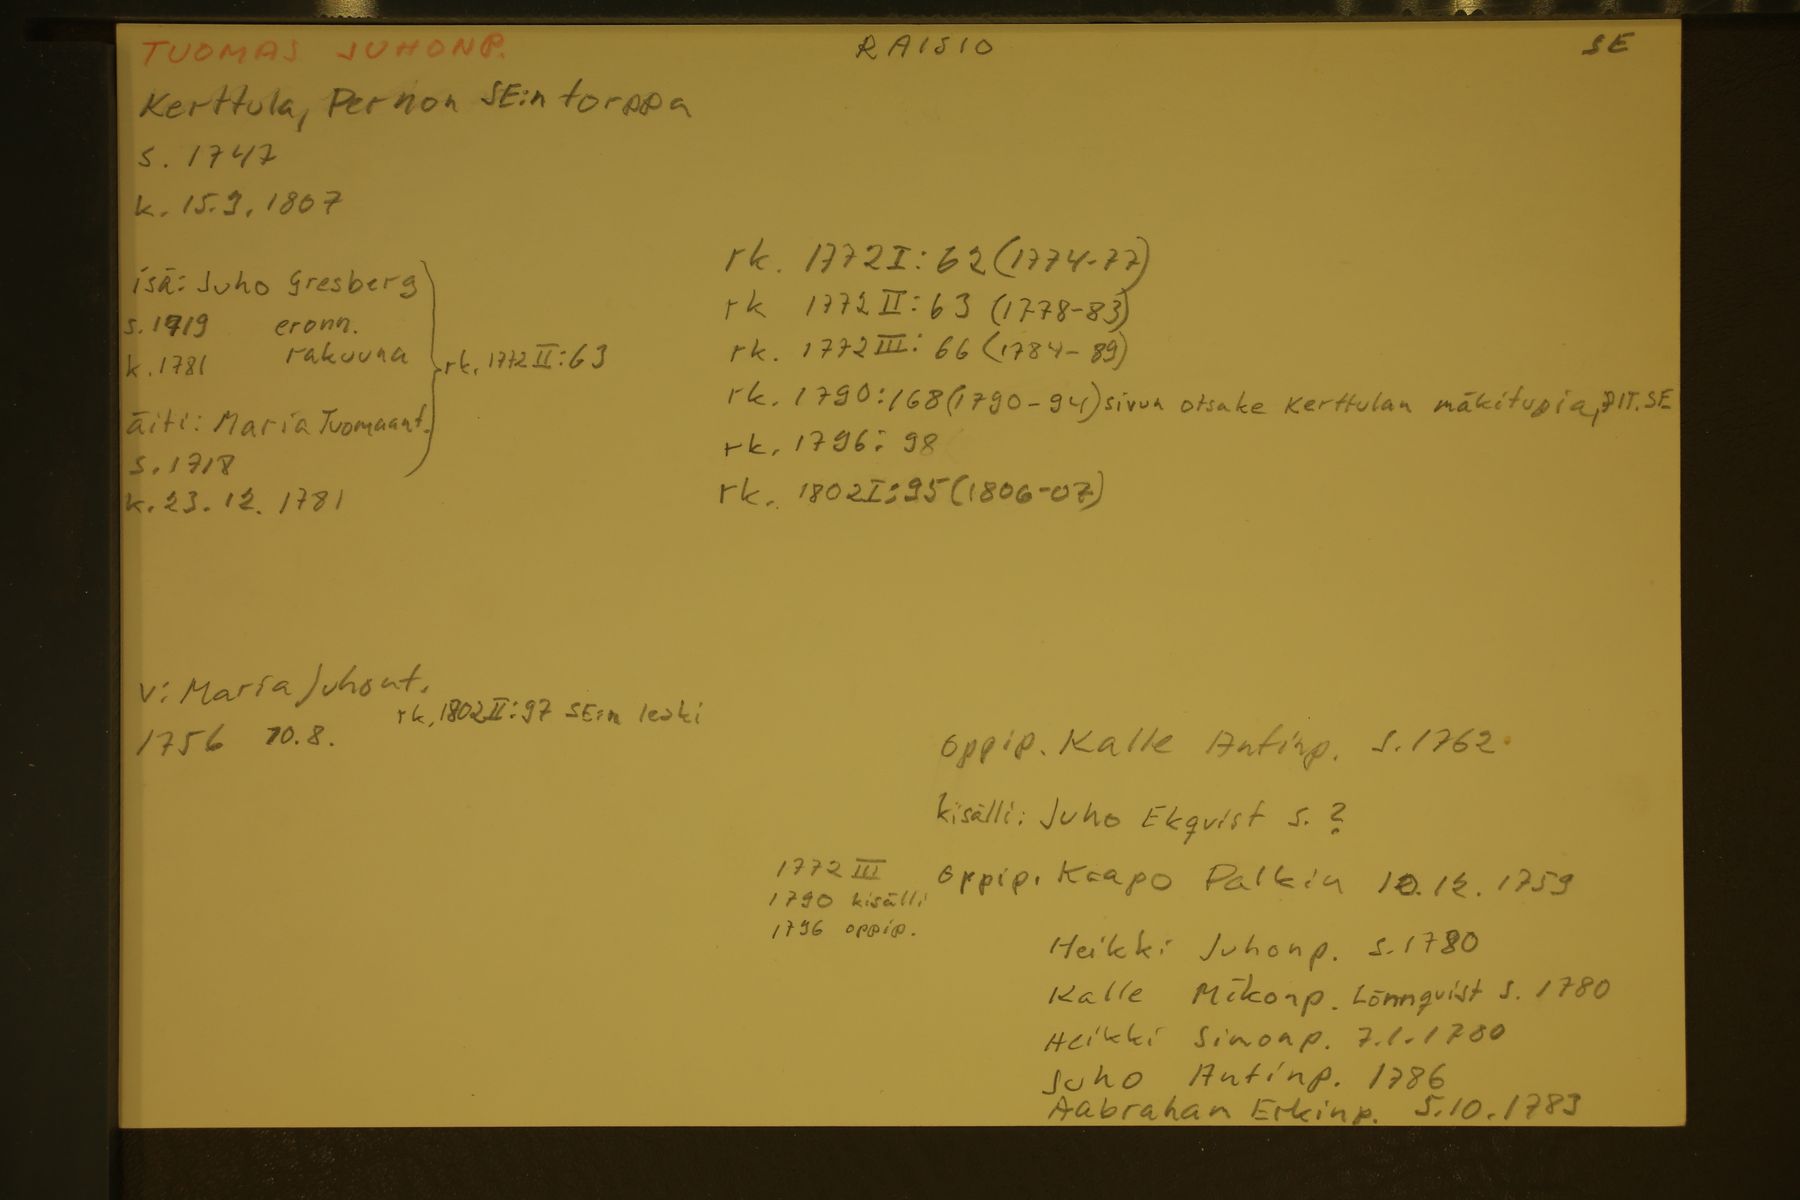 TUOMAS JUHONP. RAISIO SE
Kerttula, Pernon SE:n torppa
s. 1747
k. 15.9.1807
rk. 1772 I: 62 (1774-77)
rk 1772 II: 63 (1778-83)
rk. 1772 III: 66 (1784-89)
rk. 1790: 168 (1790-94) sivun otsake Kerttulan mäkitupia, PIT. SE
rk. 1796: 98
rk. 1802 I: 95 (1806-07)
isä: Juho Gresberg
s. 1719 eronn.
k. 1781 rakuuna
rk. 1772 II: 63
äiti: Maria Tuomaant.
s. 1718
k. 23.12.1781
v: Maria Juhont.
1756 10.8. rk. 1802 II: 97 SE:n leski
oppip. Kalle Antinp. s. 1762
kisälli: Juho Ekqvist s. ?
1772 III oppip. Kaapo Palkin 10.12.1759
1790 kisälli
1796 oppip.
Heikki Juhonp. s. 1780
Kalle Mikonp. Lönnqvist s. 1780
Heikki Simonp. 7.1.1780
Juho Antinp. 1786
Aabrahan Erkinp. 5.10.1783